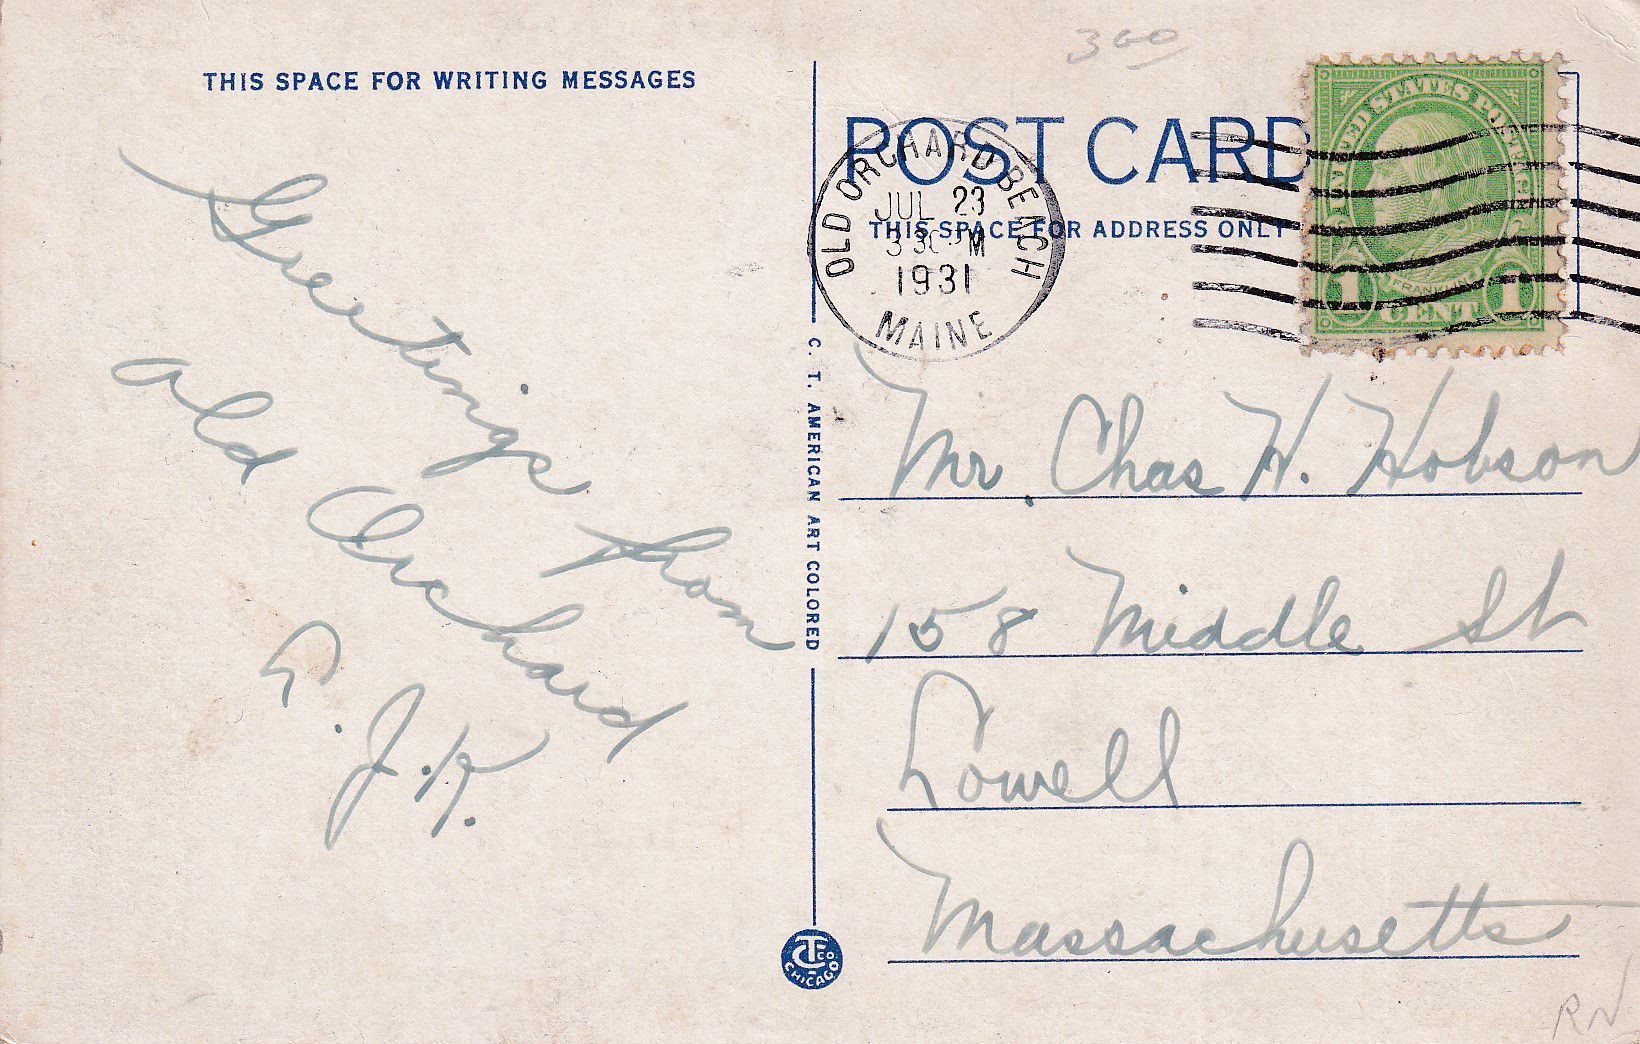 THIS SPACE FOR WRITING MESSAGES
Greetings from
Old Orchard
L. J. K.
C. T. AMERICAN ART COLORED
C T CO.
CHICAGO
300
POST CARD
THIS SPACE FOR ADDRESS ONLY
OLD ORCHARD BEACH
JUL 23
3 30 PM
1931
MAINE
UNITED STATES POSTAGE
FRANKLIN
1 CENT 1
Mr. Chas H. Hobson
158 Middle St
Lowell
Massachusetts
RN